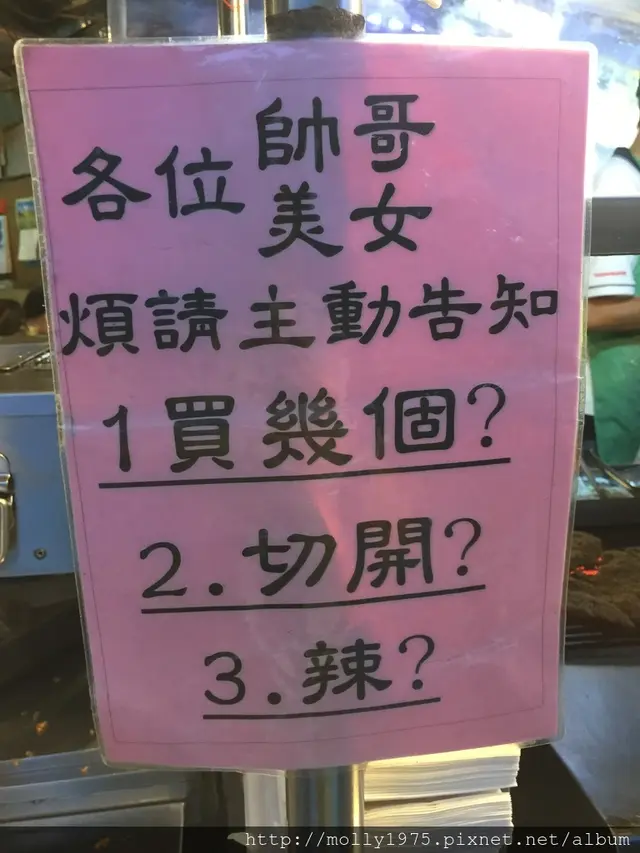 各位帥哥
美女
煩請主動告知
1買幾個?
2.切開?
3.辣?
http://molly1975.pixnet.net/album